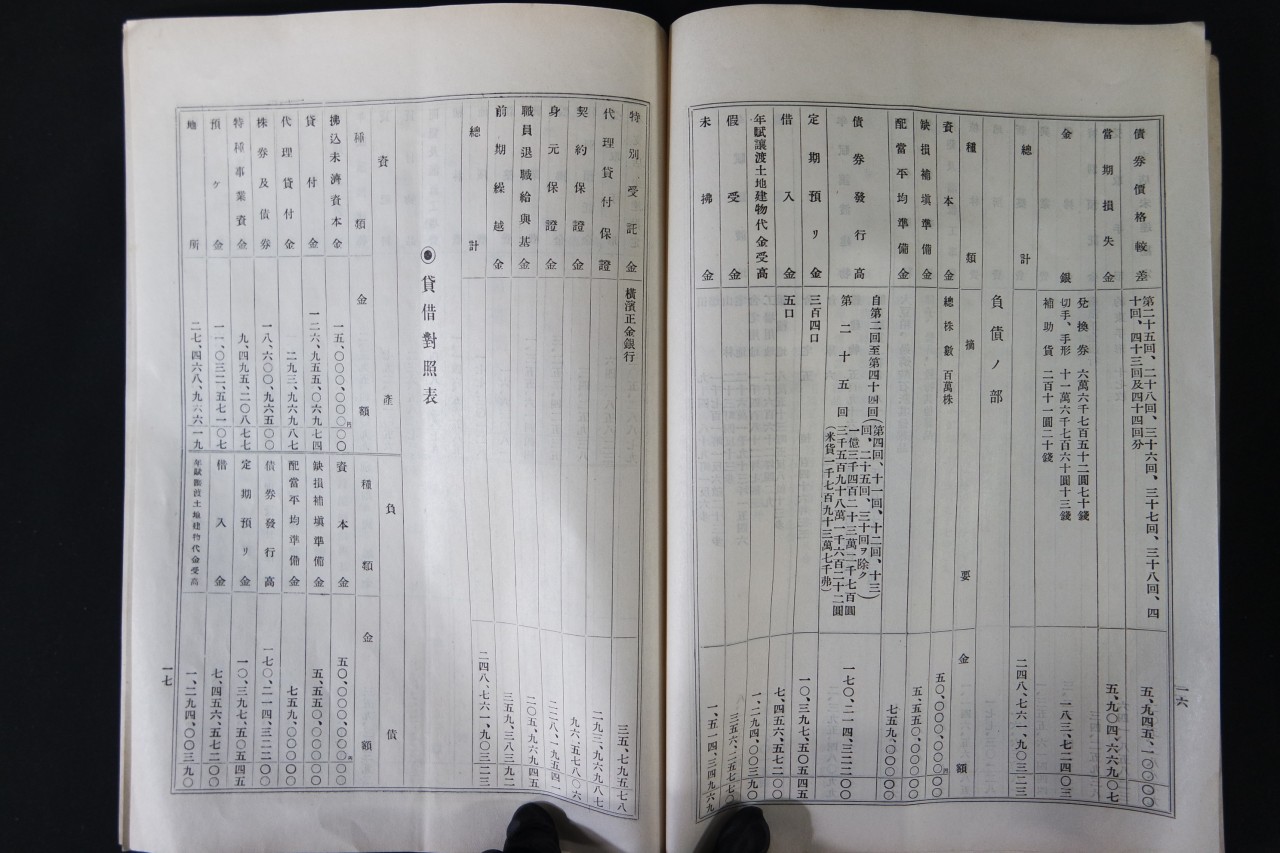 債券價格較差 第二十五回、二十八回、三十六回、三十七回、三十八回、四
十回、四十三回及四十四回分 五、九四五、一〇〇〇〇
當期損失金 五、九〇四、六六九〇七
金銀 兌換券 六萬六千七百五十二圓七十錢
切手、手形 十一萬六千七百六十圓十三錢
補助貨 二百十一圓二十錢 一八三、七二四〇三
總計 二四八、七六一、九〇三二三
負債ノ部
種類 摘要 金額
資本金 總株數 百萬株 五〇、〇〇〇、〇〇〇円〇〇
缺損補塡準備金 五、五五〇、〇〇〇〇〇
配當平均準備金 七五九、〇〇〇〇〇
債券發行高 自第二回至第四十四回(第四回、十一回、十二回、十三
回、二十五回、三十回ヲ除ク)
一億三千四百二十三萬二千七百圓
第二十五回 三千五百九十八萬一千六百二十二圓
(米貨一千七百九十三萬七千弗) 一七〇、二一四、三二二〇〇
定期預リ金 三百四口 一〇、三九七、五〇五四五
借入金 五口 七、四五六、五七二〇〇
年賦讓渡土地建物代金受高 一、二九四、〇〇三九〇
假受金 三五六、二五七七〇
未拂金 一、五一四、三四九六九
一六
特別受託金 橫濱正金銀行 三五、七九五七八
代理貸付保證 二九三、九六九八七
契約保證金 九六、五七八〇六
身元保證金 二二八、一九五四一
職員退職給與基金 二〇五、九六九四五
前期繰越金 三五九、三八三九二
總計 二四八、七六一、九〇三二三
◉貸借對照表
資產 負債
種類 金額 種類 金額
拂込未濟資本金 一五、〇〇〇、〇〇〇円〇〇 資本金 五〇、〇〇〇、〇〇〇円〇〇
貸付金 一二六、九五五、〇六九七四 缺損補塡準備金 五、五五〇、〇〇〇〇〇
代理貸付金 二九三、九六九八七 配當平均準備金 七五九、〇〇〇〇〇
株券及債券 一八、六〇〇、九六五〇〇 債券發行高 一七〇、二一四、三二二〇〇
特種事業資金 九、四九五、二〇八七七 定期預リ金 一〇、三九七、五〇五四五
預ケ金 一一、〇三二、五七一〇七 借入金 七、四五六、五七二〇〇
地所 二七、四六八、九六六一九 年賦讓渡土地建物代金受高 一、二九四、〇〇三九〇
一七